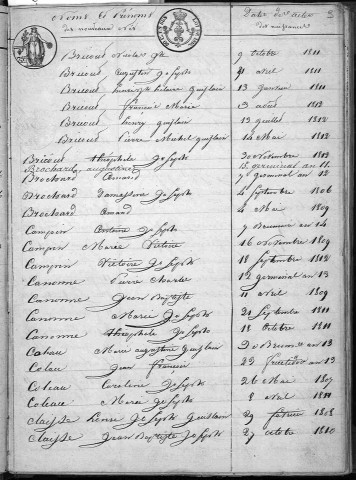 Noms et Prénoms
des nouveaux nés
Date des actes
des naissances
Bricout Nicolas Jh 9 octobre 1811
Bricout augustin Joseph 21 avril 1811
Bricout hilaire Guislain 13 1811
Bricout francois Marie 3 août 1812
Bricout henry guislain 13 juillet 1812
Bricout pierre Michel guislain 14 Mai 1812
Bricout théophile Joseph 30 novembre 1812
Brochard, augustine germinal an 11
Brochard Amand 7 germinal an 12
Brochard Joseph 4 Septembre 1806
Brochard Amand 4 Mai 1809
Campion Antoine Joseph 7 Brumaire an 14
Campion Marie Victoire 16 novembre 1809
Campion Victoire Joseph 18 Septembre 1812
Canonne Pierre Martin 12 germinal an 13
Canonne Jean Baptiste 11 avril 1809
Canonne Marie Joseph 20 Septembre 1811
Canonne théophile Joseph 18 Octobre 1811
Marie augustine Guislain 20 Brumaire an 13
Coleau Jean Francois 29 fructidor an 13
Coleau Caroline Joseph 26 Mai 1807
Coleau Marie Joseph 8 avril 1811
Claisse Joseph Guislain 29 février 1808
Claisse Jean Baptiste Joseph 27 octobre 1810